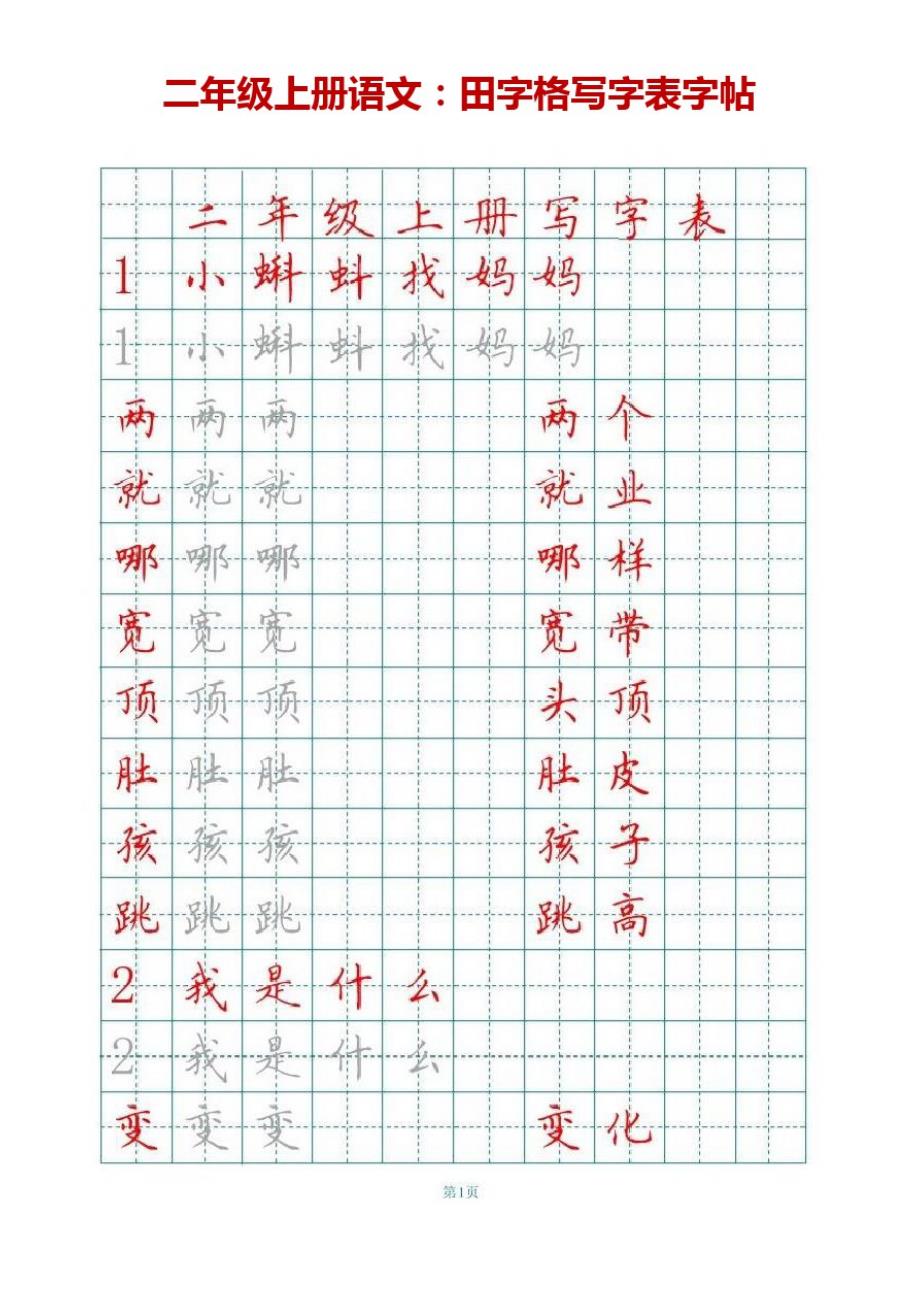 二年级上册语文：田字格写字表字帖
二年级上册写字表
1 小蝌蚪找妈妈
1 小蝌蚪找妈妈
两 两 两 两个
就 就 就 就业
哪 哪 哪 哪样
宽 宽 宽 宽带
顶 顶 顶 头顶
肚 肚 肚 肚皮
孩 孩 孩 孩子
跳 跳 跳 跳高
2 我是什么
2 我是什么
变 变 变 变化
第1页